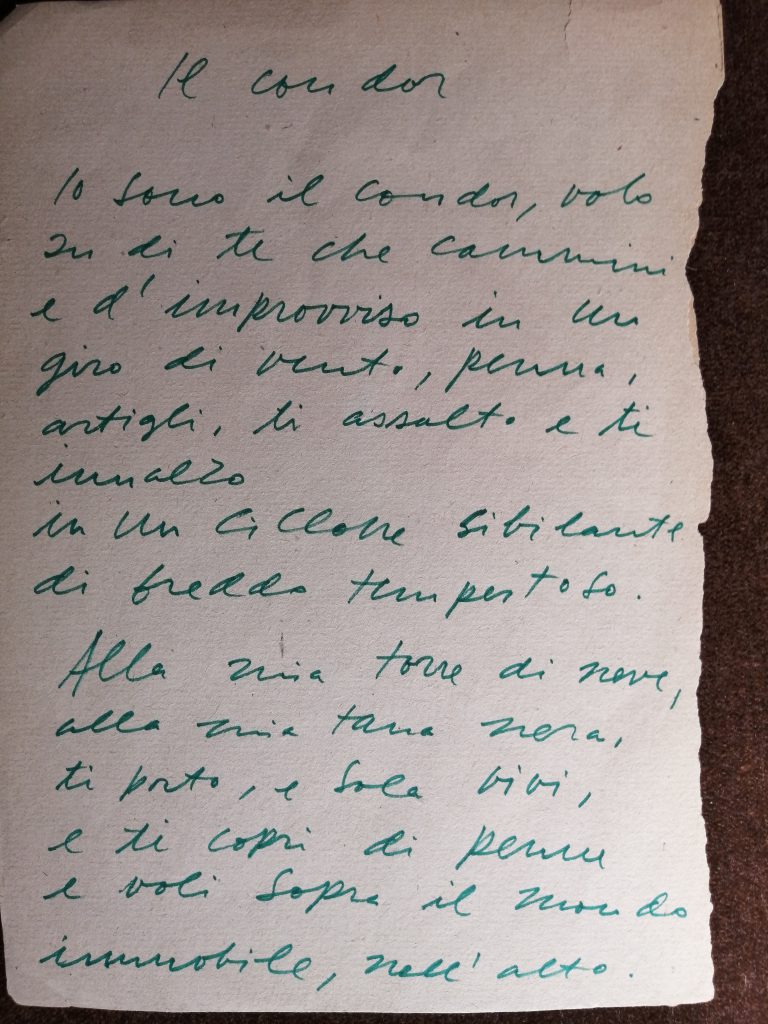 Il condor
Io sono il condor, volo
su di te che cammini
e d'improvviso in un
giro di vento, penna,
artigli, ti assalto e ti
innalzo
in un ciclone sibilante
di freddo tempestoso.
Alla mia torre di neve,
alla mia tana nera,
ti porto, e sola vivi,
e ti copri di penne
e voli sopra il mondo
immobile, nell'alto.